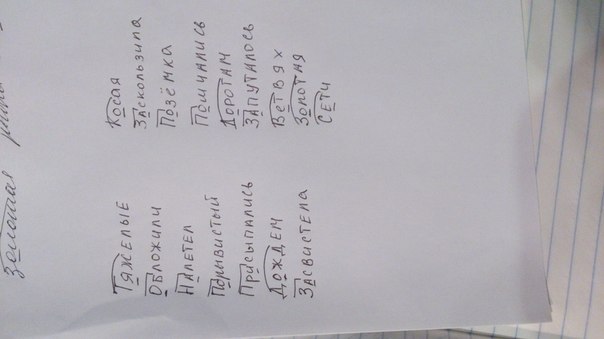 золотая
Тяжелые
Обложили
Налетел
Порывистый
Присыпались
Дождем
Засвистела
Косая
Заскользила
Позёмка
Помчались
Дорогам
Запуталось
Ветвях
Золотая
Сети